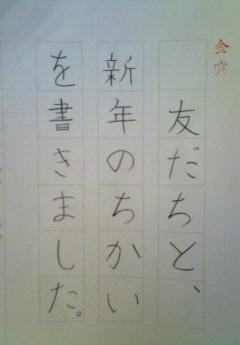 金賞
友だちと、
新年のちかい
を書きました。